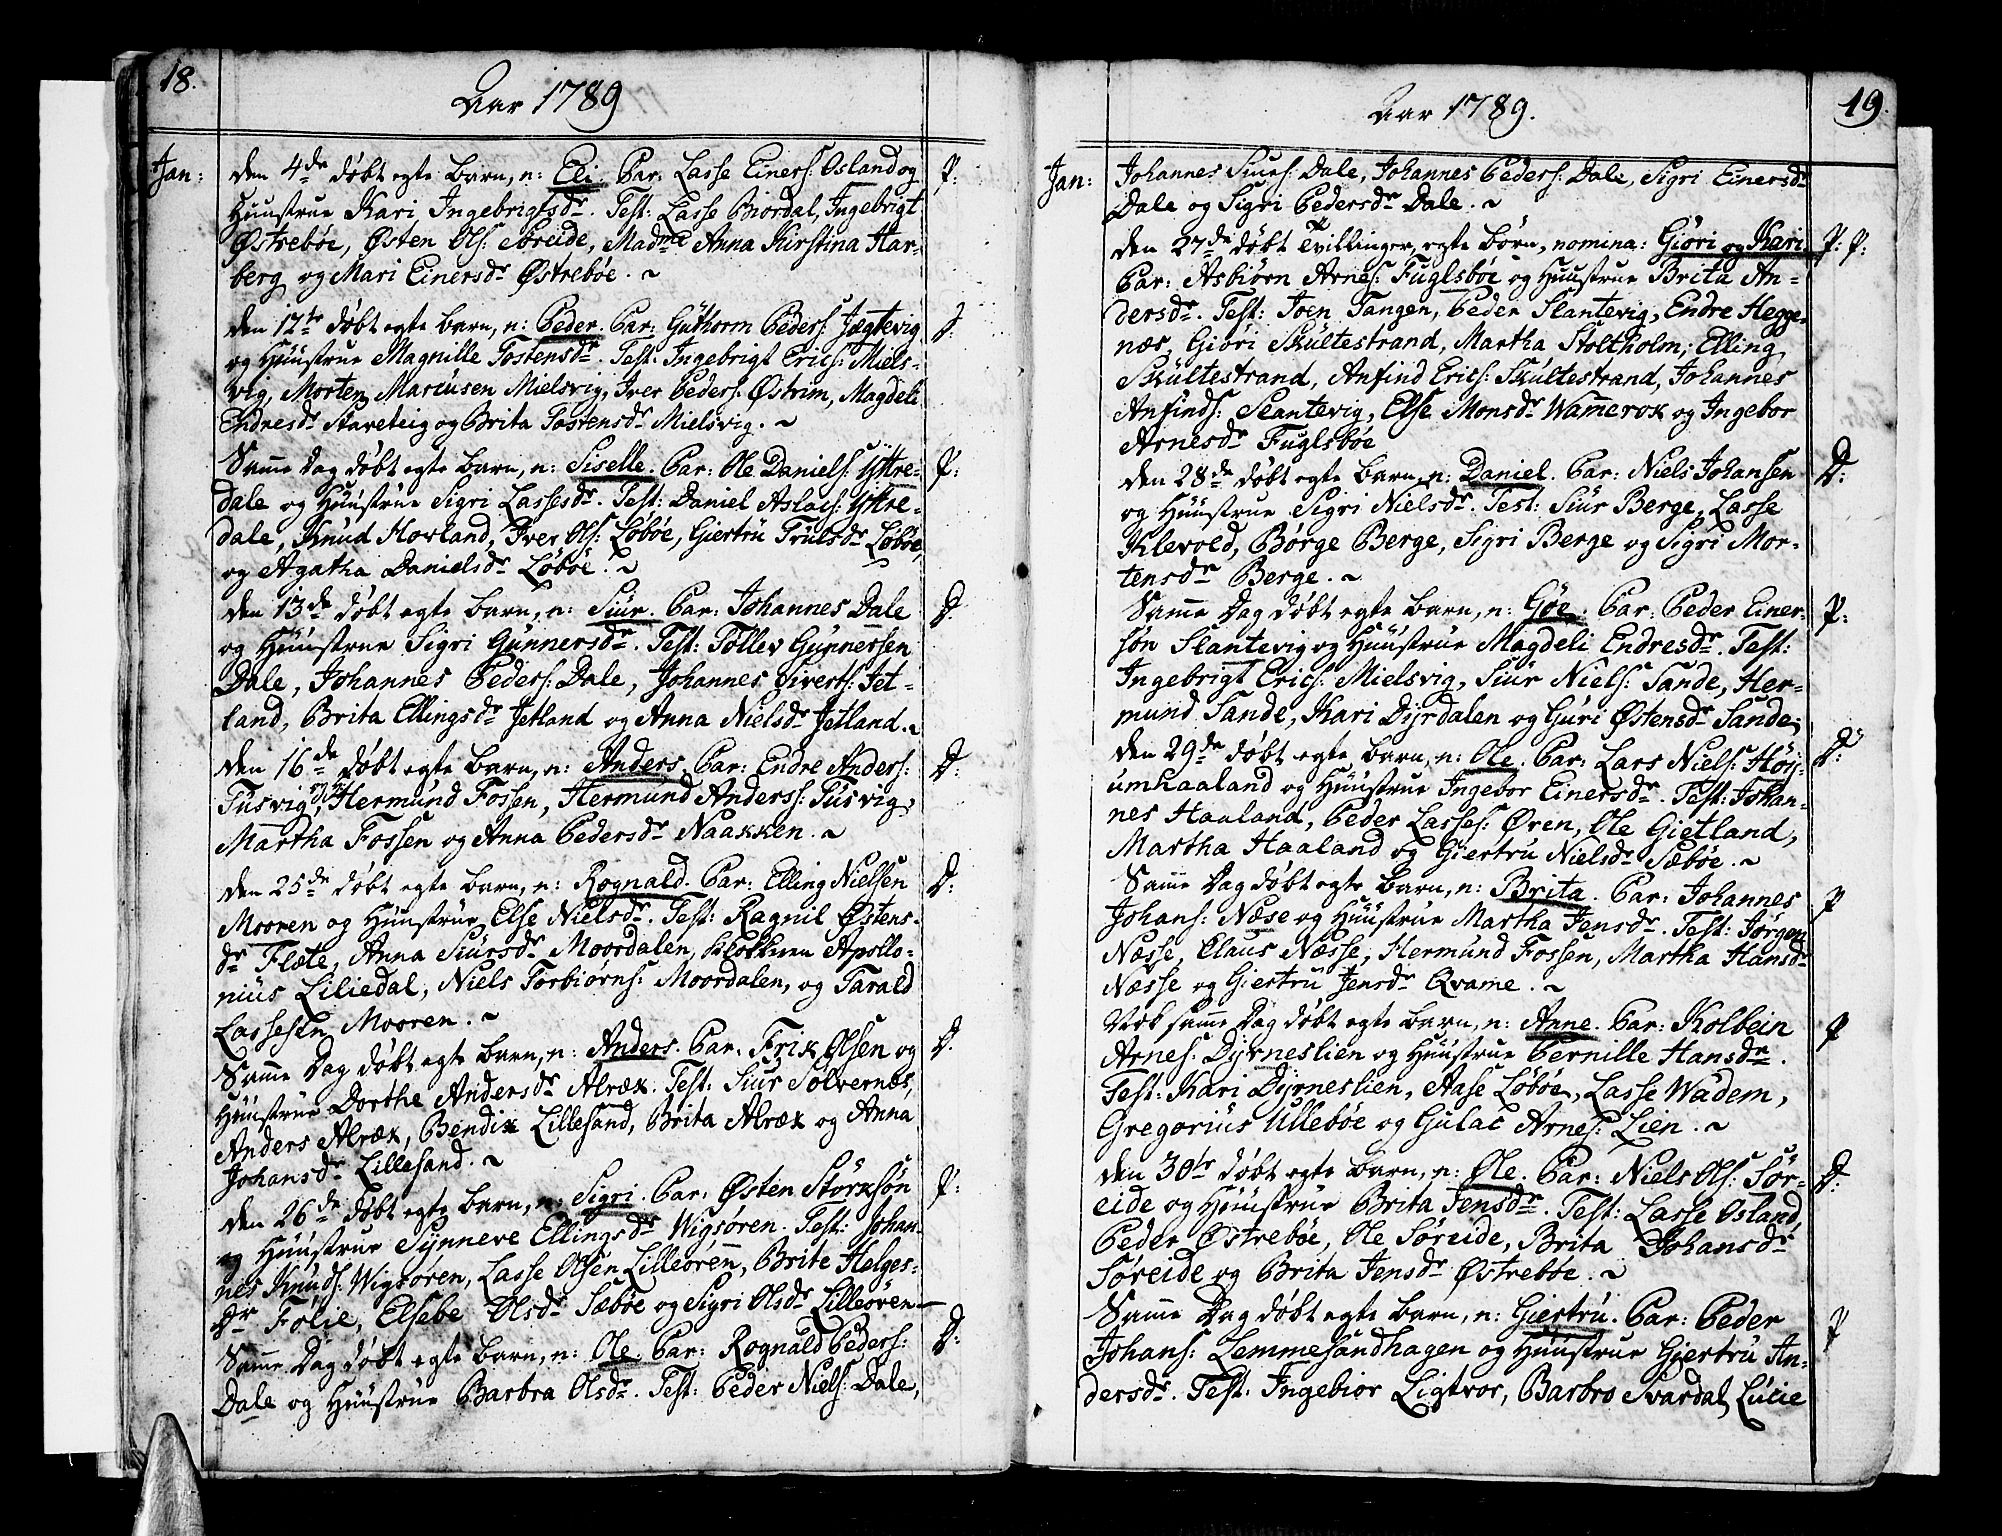 18.
Aar 1789
Jan: den 4de døbt egte Barn, n: Eli. Par: Lasse Einers: Osland og P:
Huustrue Kari Ingebrigtsdr. Test: Lasse Biordal, Ingebrigt
Østrebøe, Østen Ols: Søreide, Madme Anna Kirstina Har-
berg og Mari Einersdr Østrebøe. ~
den 12te døbt egte Barn, n: Peder. Par: Guthorm Peders: Jægtevig D:
og Huustrue Magnille Tostensdr. Test: Ingebrigt Erics: Miels-
vig, Morten Mariusen Mielsvig, Iver Peders: Østrim, Magdeli
Endresdr Stareteig og Brita Tostensdr Mielsvig. ~
Samme Dag døbt egte Barn, n: Siselle. Par: Ole Daniels: Yttre- P:
dale og Huustrue Sigri Lassesdr. Test: Daniel Aslacs: Yttre-
dale, Knud Hovland, Iver Ols: Løbøe, Giertru Trulsdr Løbøe,
og Agatha Danielsdr Løbøe. ~
den 13de døbt egte Barn, n: Siur. Par: Johannes Dale D:
og Huustrue Sigri Gunnersdr. Test: Tollev Gunnersen
Dale, Johannes Peders: Dale, Johannes Siverts: Jet-
land, Brita Ellingsdr Jetland og Anna Nielsdr Jetland. ~
den 16de døbt egte Barn, n: Anders. Par: Endre Anders: D:
Tusvig, Hermund Fossen, Hermund Anderss: Tusvig,
Martha Fossen og Anna Pedersdr Naakken. ~
den 25de døbt egte Barn, n: Rognald. Par: Elling Nielsen D:
Mooren og Huustrue Else Nielsdr. Test: Ragnil Østens-
dr Flete, Anna Siursdr Moordalen, Klokkeren Apollo-
nius Liliedal, Niels Torbiørns: Moordalen, og Tarald
Lassesen Mooren. ~
Samme Dag døbt egte Barn, n: Anders. Par: Frik Olsen og D.
Huustrue Dorthe Andersdr Alræk. Test: Siur Solvernæs,
Anders Alræk, Bendix Lillesand, Brita Alræk og Anna
Johansdr Lillesand. ~
den 26de døbt egte Barn, n: Sigri. Par: Østen Størksøn P:
og Huustrue Synneve Ellingsdr Wigsøren. Test: Johan-
nes Knuds: Wigsøren, Lasse Olsen Lilleøren, Brite Helges-
dr Folie, Elsebe Olsdr Sæbøe og Sigri Olsdr Lilleøren —
Samme Dag døbt egte Barn, n: Ole. Par: Rognald Peders: D:
Dale og Huustrue Barbra Olsdr. Test: Peder Niels: Dale,
Aar 1789.
19.
Jan: Johannes Siurs: Dale, Johannes Peders: Dale, Sigri Einersdr
Dale og Sigri Pedersdr Dale. ~
den 27de døbt Tvillinger, egte Børn, nomina: Giøri og Kari P: P:
Par: Asbiørn Arnes: Fuglsbøe og Huustrue Brita An-
dersdr. Test: Joen Tangen, Peder Slantevig, Endre Hegge-
næs, Giøri Skultestrand, Martha Stoltholm; Elling
Skultestrand, Anfind Erics: Skultestrand, Johannes
Anfinds: Slantevig, Else Monsdr Wamerox og Ingebor
Arnesdr Fuglsbøe
den 28de døbt egte Barn, n: Daniel. Par: Niels Johansen D:
og Huustrue Sigri Nielsdr. Test: Siur Berge, Lasse
Klevold, Børge Berge, Sigri Berge og Sigri Mor-
tensdr Berge. ~
Samme Dag døbt egte Barn, n: Gøe. Par: Peder Einer- P:
søn Slantevig og Huustrue Magdeli Endresdr. Test:
Ingebrigt Erics: Mielsvig, Siur Niels: Sande, Her-
mund Sande, Kari Dyrdalen og Guri Østensdr Sande.
den 29de døbt egte Barn, n: Ole. Par: Lars Niels: Høy- D:
umhaaland og Huustrue Ingebor Einersdr. Test: Johan-
nes Haaland, Peder Lasses: Øren, Ole Gietland,
Martha Haaland og Giertru Nielsdr Sæbøe. ~
Samme Dag døbt egte Barn, n: Brita. Par: Johannes P
Johans: Næse og Huustrue Martha Jensdr. Test: Jørgen
Næsse, Claus Næsse, Hermund Fossen, Martha Hansdr
Næsse og Giertru Jensdr Qvame. ~
Nok samme Dag døbt egte Barn, n: Anne. Par: Kolbein P
Arnes: Dyrneslien og Huustrue Pernille Hansdr.
Test: Kari Dyrneslien, Aase Løbøe, Lasse Wadem,
Gregorius Ullebøe og Gulac Arnes: Lien. ~
den 30te døbt egte Barn, n: Ole. Par: Niels Ols: Sør- D:
eide og Huustrue Brita Jensdr. Test: Lasse Osland,
Peder Østrebøe, Ole Søreide, Brita Johansdr
Søreide og Brita Jensdr Østrebøe. ~
Samme Dag døbt egte Barn, n: Giertru. Par: Peder P
Johans: Lemmesandhagen og Huustrue Giertru An-
dersdr. Test: Ingebior Ligtvor, Barbro Svardal, Lucie